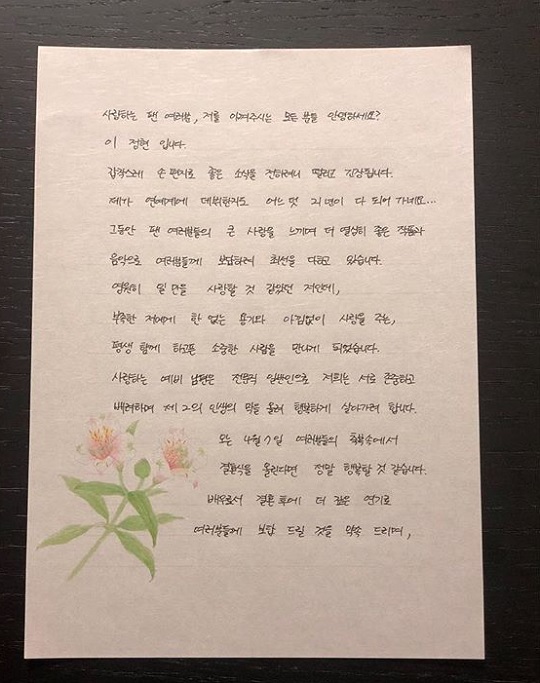 사랑하는 팬 여러분, 저를 아껴주시는 모든 분들 안녕하세요?
이 정현 입니다.
갑작스레 손 편지로 좋은 소식을 전하려니 떨리고 긴장됩니다.
제가 연예계에 데뷔한지도 어느 덧 21년이 다 되어 가네요...
그동안 팬 여러분들의 큰 사랑을 느끼며 더 열심히 좋은 작품과
음악으로 여러분들께 보답하려 최선을 다하고 있습니다.
영원히 일 만을 사랑할 것 같았던 저인데,
부족한 저에게 한 없는 용기와 아낌없이 사랑을 주는,
평생 함께 하고픈 소중한 사람을 만나게 되었습니다.
사랑하는 예비 남편은 전문직 일반인으로 저희는 서로 존중하고
배려하며 제 2의 인생의 막을 올려 행복하게 살아가려 합니다.
오는 4월 7일 여러분들의 축복속에서
결혼식을 올린다면 정말 행복할 것 같습니다.
배우로서 결혼 후에 더 깊은 연기로
여러분들께 보답 드릴 것을 약속 드리며,